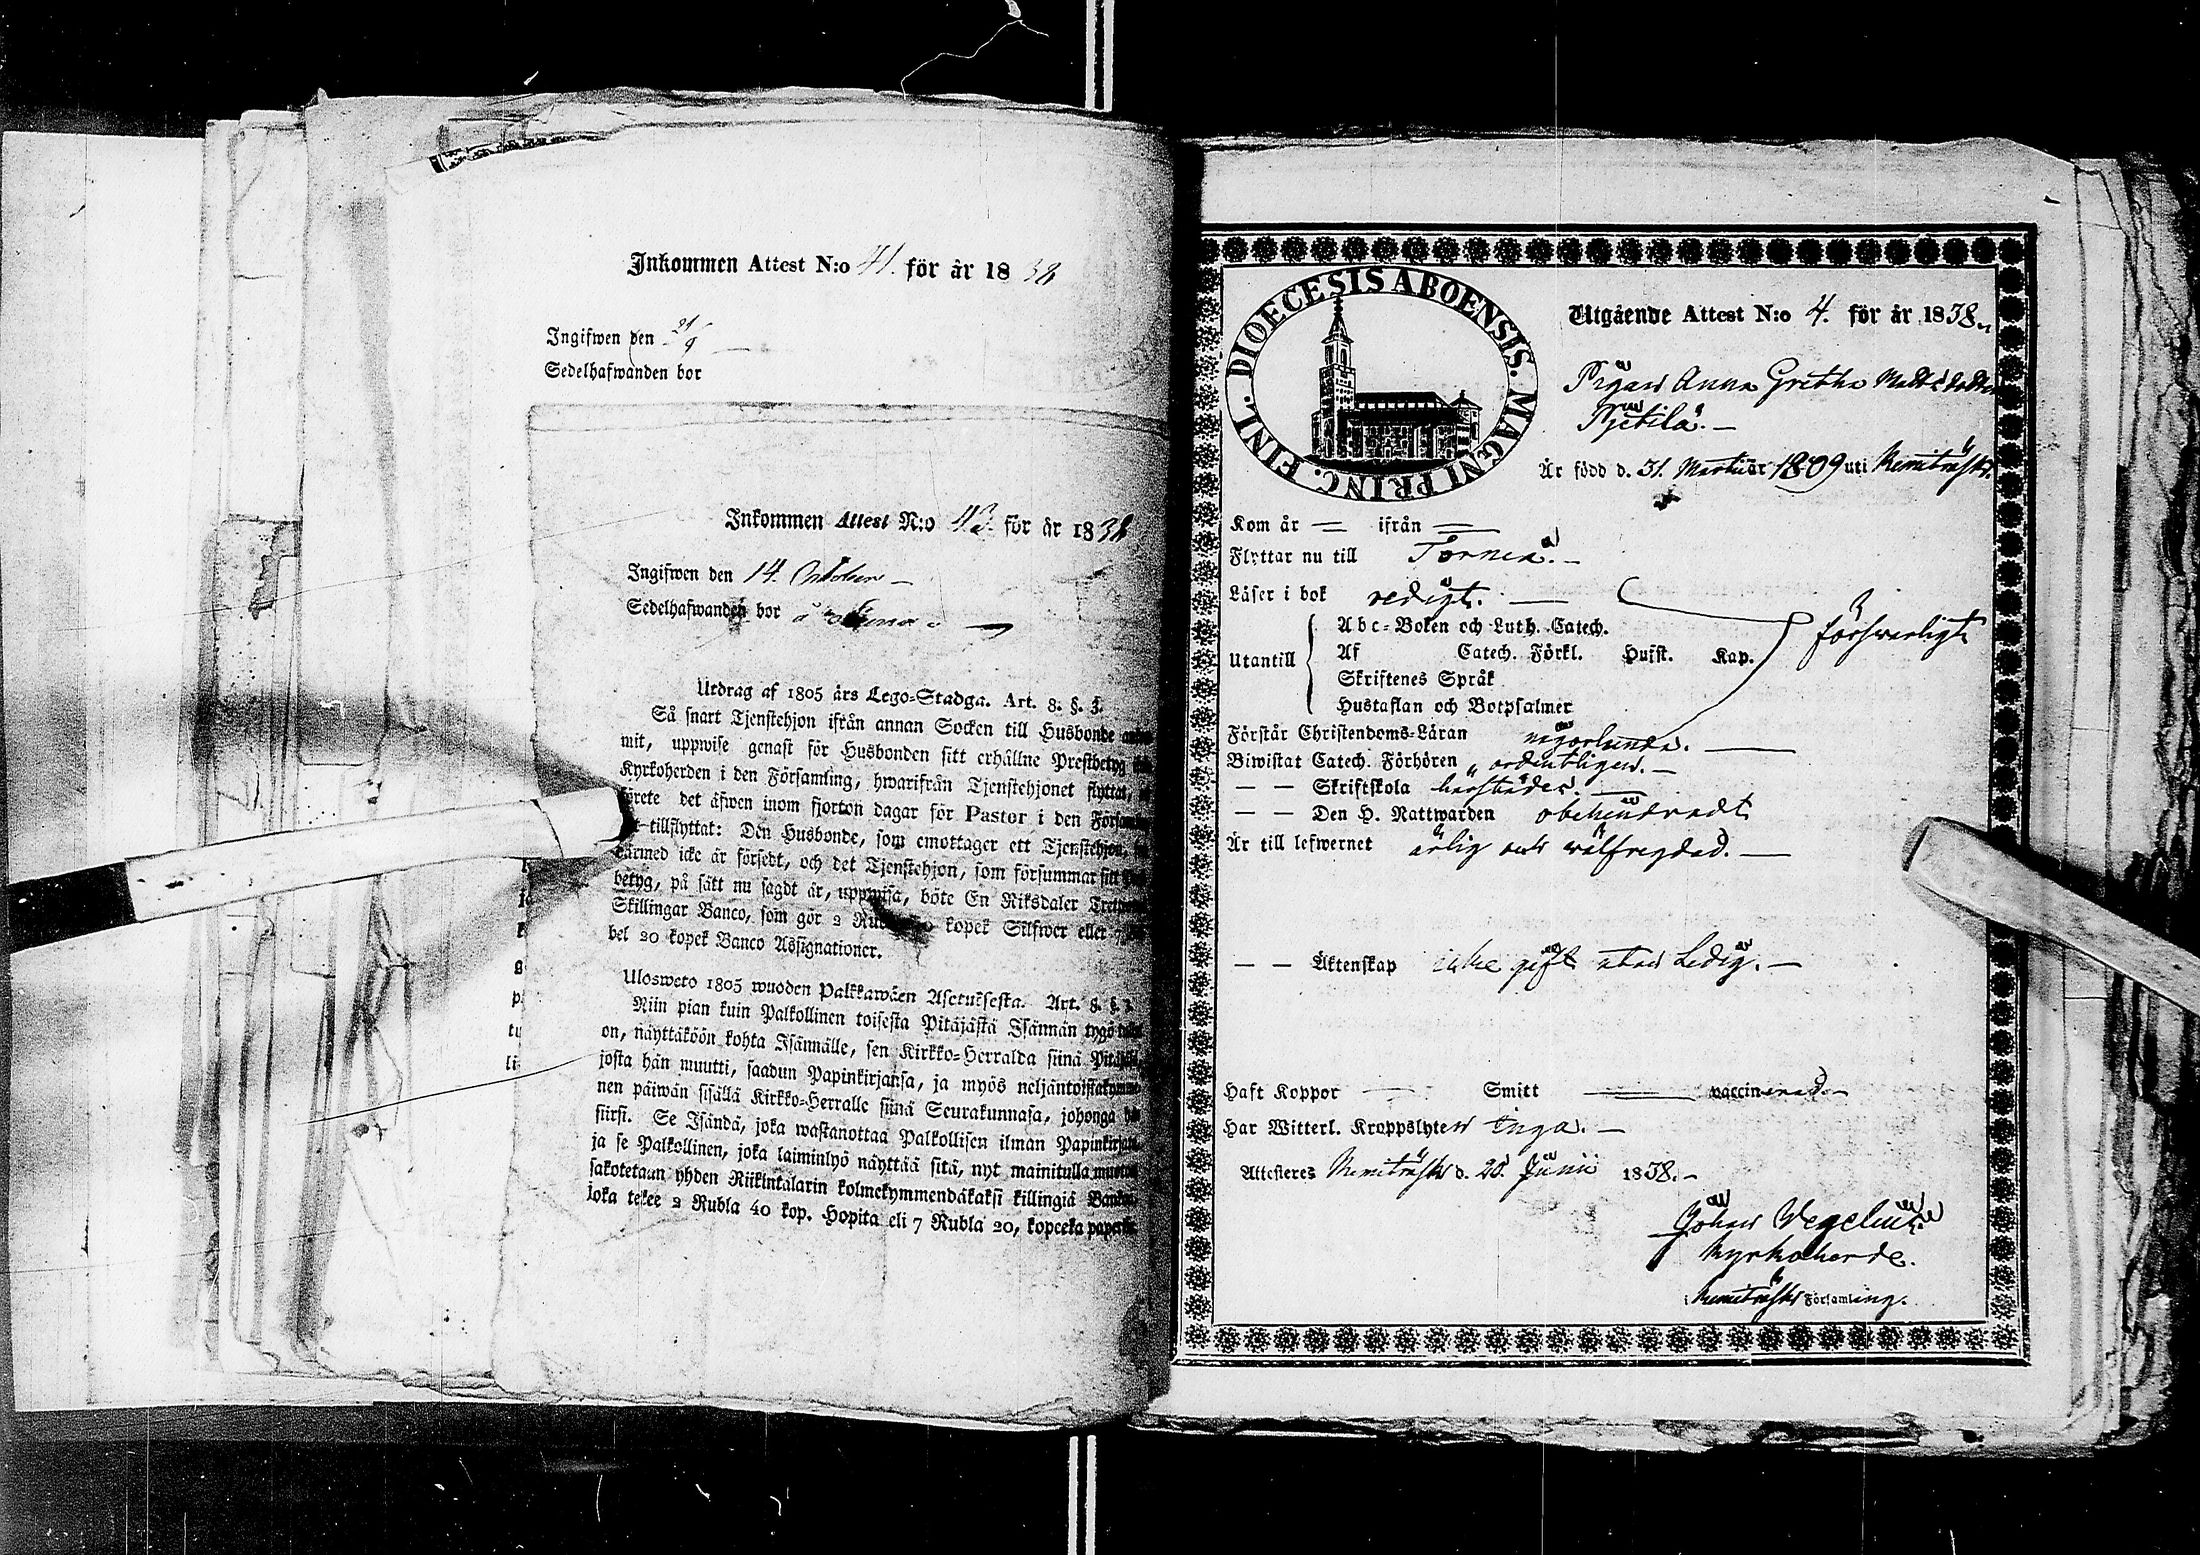 Inkommen Attest N:o 41. för år 1838
Ingifwen den 21/9
Sedelhafwanden bor
Inkommen Attest N:o 43. för år 1838
Ingifwen den 14. October
Sedelhafwanden bor å
Utdrag af 1805 års Lego-Stadga. Art. 8. §. 3.
Så snart Tjenstehjon ifrån annan Socken till Husbonde
mit, uppwise genast för Husbonden sitt erhållne Prestbetyg
Kyrkoherden i den Församling, hwarifrån Tjenstehjonet flyttat,
förete det äfwen inom fjorton dagar för Pastor i den
tillflyttat: Den Husbonde, som emottager ett Tjenstehjon,
härmed icke är försedt, och det Tjenstehjon, som försummar sitt
betyg, på sätt nu sagdt är, uppwisa, böte En Riksdaler
Skillingar Banco, som gör 2 kopek Silfwer eller 7
bel 20 kopek Banco Assignationer.
Ulosweto 1805 wuoden Palkkawäen Asetuksesta. Art. 8. §.
Niin pian kuin Palkollinen toisesta Pitäjästä Isännän tygö
on, näyttäköön kohta Isännälle, sen Kirkko-Herralda siinä
josta hän muutti, saadun Papinkirjansa, ja myös
nen päiwän sisällä Kirkko-Herralle siinä Seurakunnasa, johonga
siirsi. Se Isändä, joka wastanottaa Palkollisen ilman
ja se Palkollinen, joka laiminlyö näyttää sitä, nyt mainitulla
sakotetaan yhden Riikintalarin kolmekymmendäkaksi killingiä
joka tekee 2 Rubla 40 kop. Hopita eli 7 Rubla 20, kopeeka
DIOECESIS ABOENSIS. MAGNI PRINC. FINL.
Utgående Attest N:o 4. för år 1838.
Pigan Anna Gretha Mattsdotter
Pjetilä.
Är född d. 31. Martii år 1809 uti Kemiträsk.
Kom år — ifrån —
Flyttar nu till Torneå.
Läser i bok redigt.
Utantill
Abc-Boken och Luth. Catech.
Af Catech. Förkl. Hufst. Kap.
Skriftenes Språk
Hustaflan och Botpsalmer
förswarligt
Förstår Christendoms-Läran någorlunda.
Biwistat Catech. Förhören ordentligen.
— — Skriftskola härstädes.
— — Den H. Nattwarden obehindradt
Är till lefwernet ärlig och wälfregdad.
— — Äktenskap icke gift utan Ledig.
Haft Koppor — Smitt — vaccinerad.
Har Witterl. Kroppslyten inga.
Attesteres Kemiträsk d. 20. Junii 1838.
Johan Wegelius
Kyrkoherde.
i Kemiträsk Församling.